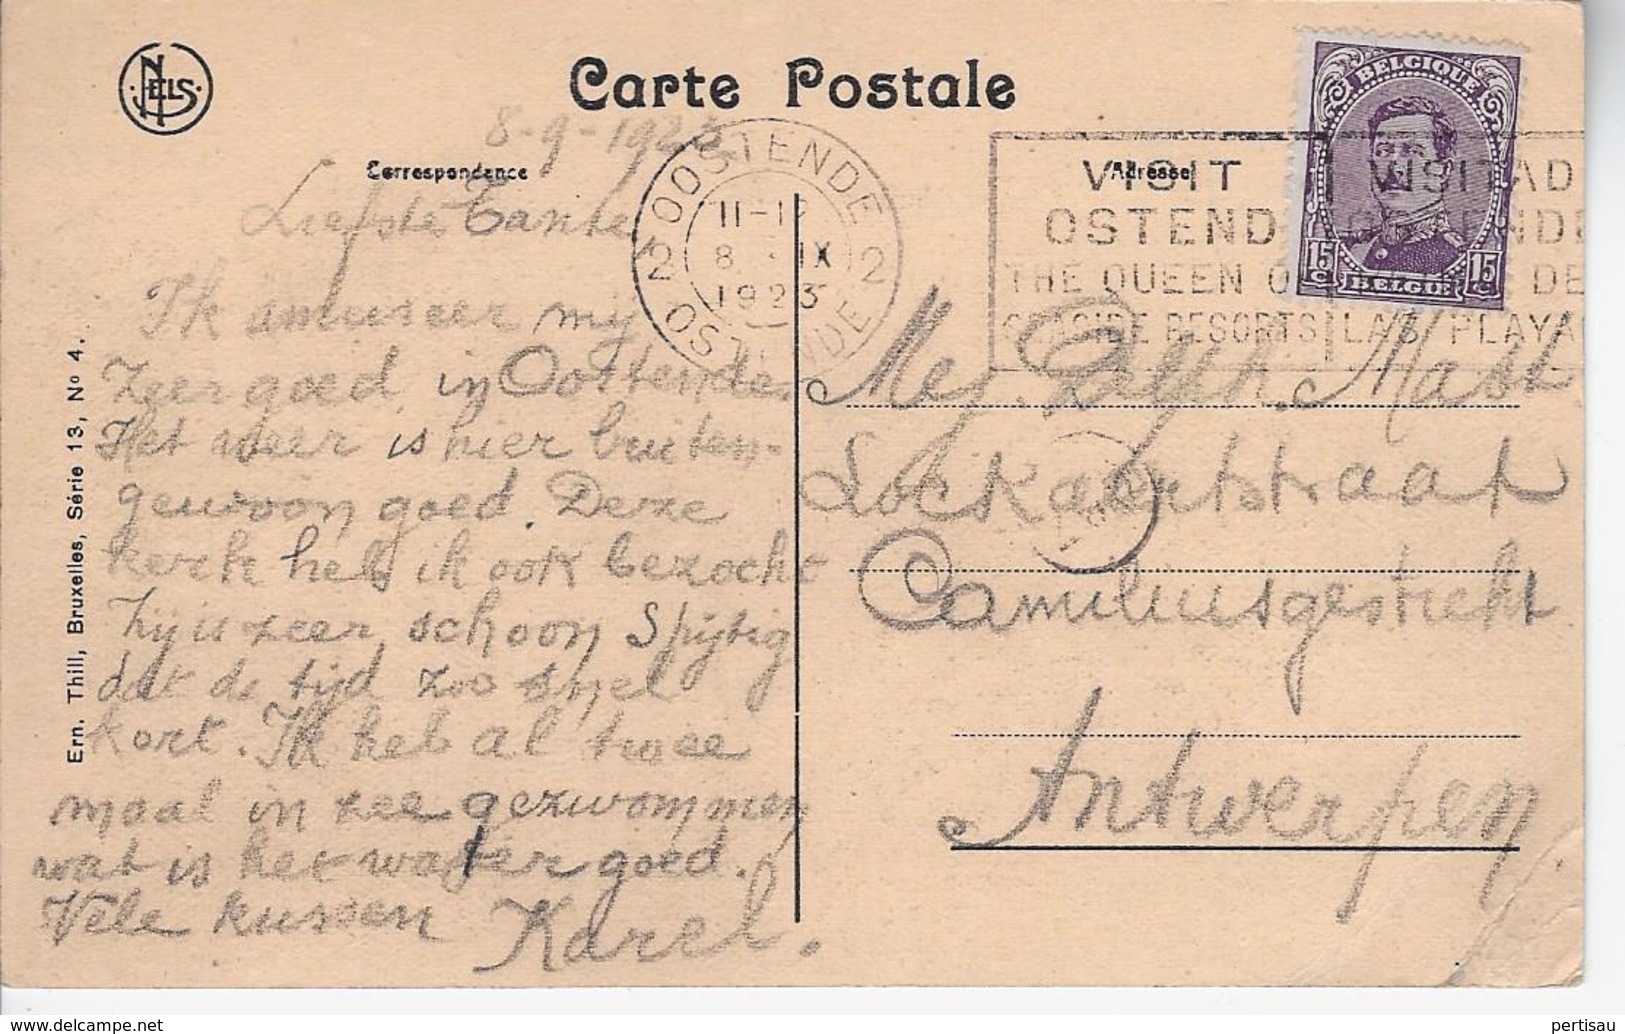 NELS
Carte Postale
8-9-1923
Correspondance
Adresse
Liefste Tante,
Ik amuseer mij
zeer goed in Oostende.
Het weer is hier buiten-
gewoon goed. Deze
kerk heb ik ook bezocht
Zij is zeer schoon Spijtig
dat de tijd zoo snel
kort. Ik heb al twee
maal in zee gezwommen
wat is het water goed.
Vele kussen Karel.
Ern. Thill, Bruxelles, Série 13, No 4.
OOSTENDE
2 2
11-12
8 IX
1923
OSTENDE
VISIT
OSTEND
THE QUEEN OF
SEASIDE RESORTS
VISITAD
DE
LAS PLAYA
BELGIQUE
15 c 15 c
BELGIE
Mej. Delph. Mast
Lockaertstraat
Camiliusgesticht
Antwerpen
pertisau